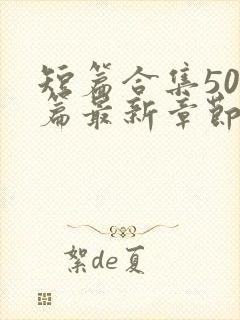 短篇合集50
篇最新章节
絮de夏